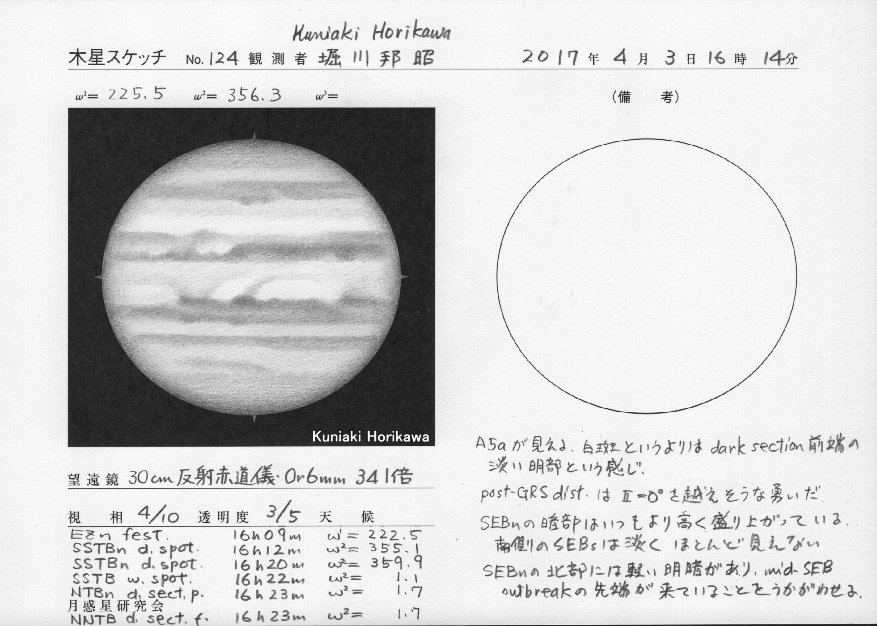 Kuniaki Horikawa
木星スケッチ No.124 観測者 堀川邦昭 2017年4月3日16時14分
ω¹= 225.5 ω²= 356.3 ω³=
(備 考)
Kuniaki Horikawa
A5aが見える. 白斑というよりは dark section前端の
淡い明部という感じ.
post-GRS dist. は Ⅱ=0°を越えそうな勇いだ
SEBnの暗部はいつもより高く盛り上がっている.
南側のSEBsは淡く ほとんど見えない
SEBnの北部には軽い明暗があり, mid-SEB
outbreakの先端が来ていることをうかがわせる.
望遠鏡 30cm反射赤道儀・Or6mm 341倍
視 相 4/10 透明度 3/5 天 候
EZn fest. 16h09m ω¹= 222.5
SSTBn d. spot. 16h12m ω²= 355.1
SSTBn d. spot. 16h20m ω²= 359.9
SSTB w. spot. 16h22m ω²= 1.1
NTBn d. sect. p. 16h23m ω²= 1.7
月惑星研究会
NNTB d. sect. f. 16h23m ω²= 1.7